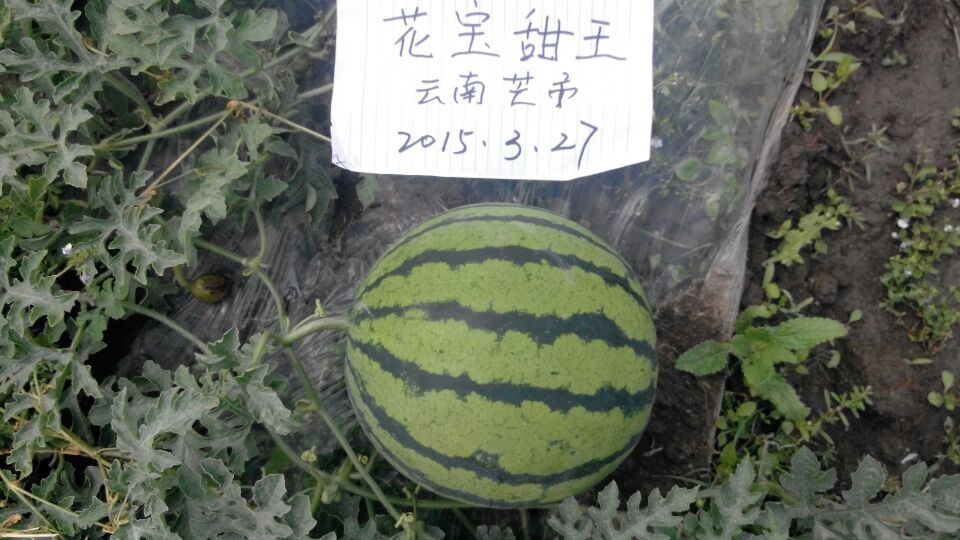 花宝甜王
云南芒市
2015.3.27